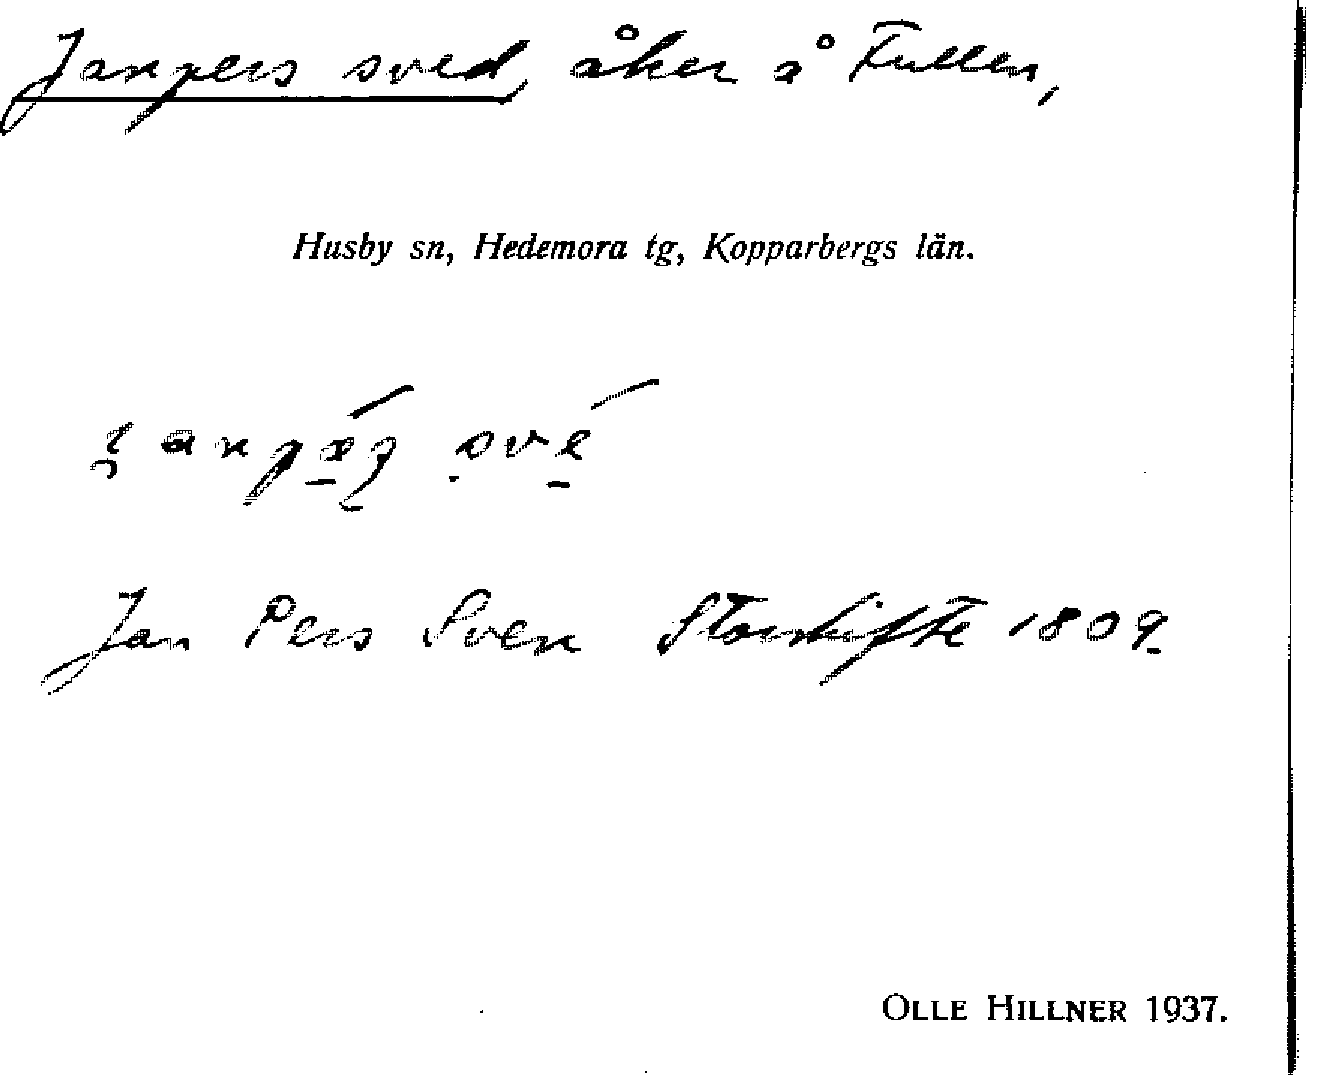 Janpers sved, åker å Fullen,
Husby sn, Hedemora tg, Kopparbergs län.
Jan Pers Sven Storskifte 1809
OLLE HILLNER 1937.